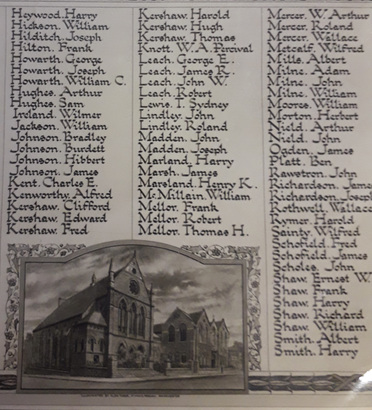 Heywood. Harry
Hickson. William
Hilditch. Joseph
Hilton. Frank
Howarth. George
Howarth. Joseph
Howarth. William C.
Hughes. Arthur
Hughes. Sam
Ireland. Wilmer
Jackson. William
Johnson Bradley
Johnson. Burdett
Johnson. Hibbert
Johnson. James
Kent. Charles E.
Kenworthy. Alfred
Kershaw. Clifford
Kershaw. Edward
Kershaw. Fred
Kershaw. Harold
Kershaw. Hugh
Kershaw. Thomas
Knott. W. A. Percival
Leach. George E.
Leach. James R.
Leach. John W.
Leach. Robert
Lewis. T. Sydney
Lindley. John
Lindley. Roland
Madden. John
Madden. Joseph
Marland. Harry
Marsh. James
Marsland. Henry K.
McMillain. William
Mellor. Frank
Mellor. Robert
Mellor. Thomas H.
Mercer. W. Arthur
Mercer. Roland
Mercer. Wallace
Metcalf. Wilfred
Mills. Albert
Milne. Adam
Milne. John
Milne. William
Moores. William
Morton. Herbert
Nield. Arthur
Nield. John
Ogden. James
Platt. Ben
Rawstron. John
Richardson. James
Richardson. Joseph
Rothwell. Wallace
Rymer. Harold
Sainty. Wilfred
Schofield. Fred
Schofield. James
Scholes. John
Shaw. Ernest W.
Shaw. Frank
Shaw. Harry
Shaw. Richard
Shaw. William
Smith. Albert
Smith. Harry